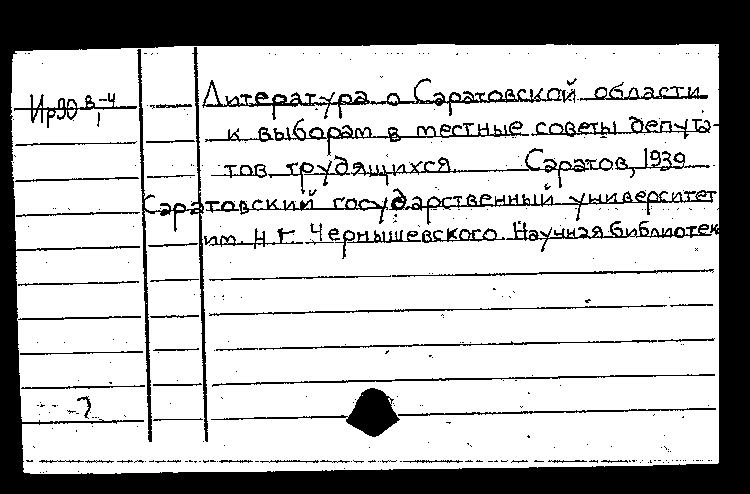 Ир90 в-4
1
Литература о Саратовской области
к выборам в местные советы депута-
тов трудящихся. Саратов, 1939
Саратовский государственный университет
им. Н.Г. Чернышевского. Научная библиотек